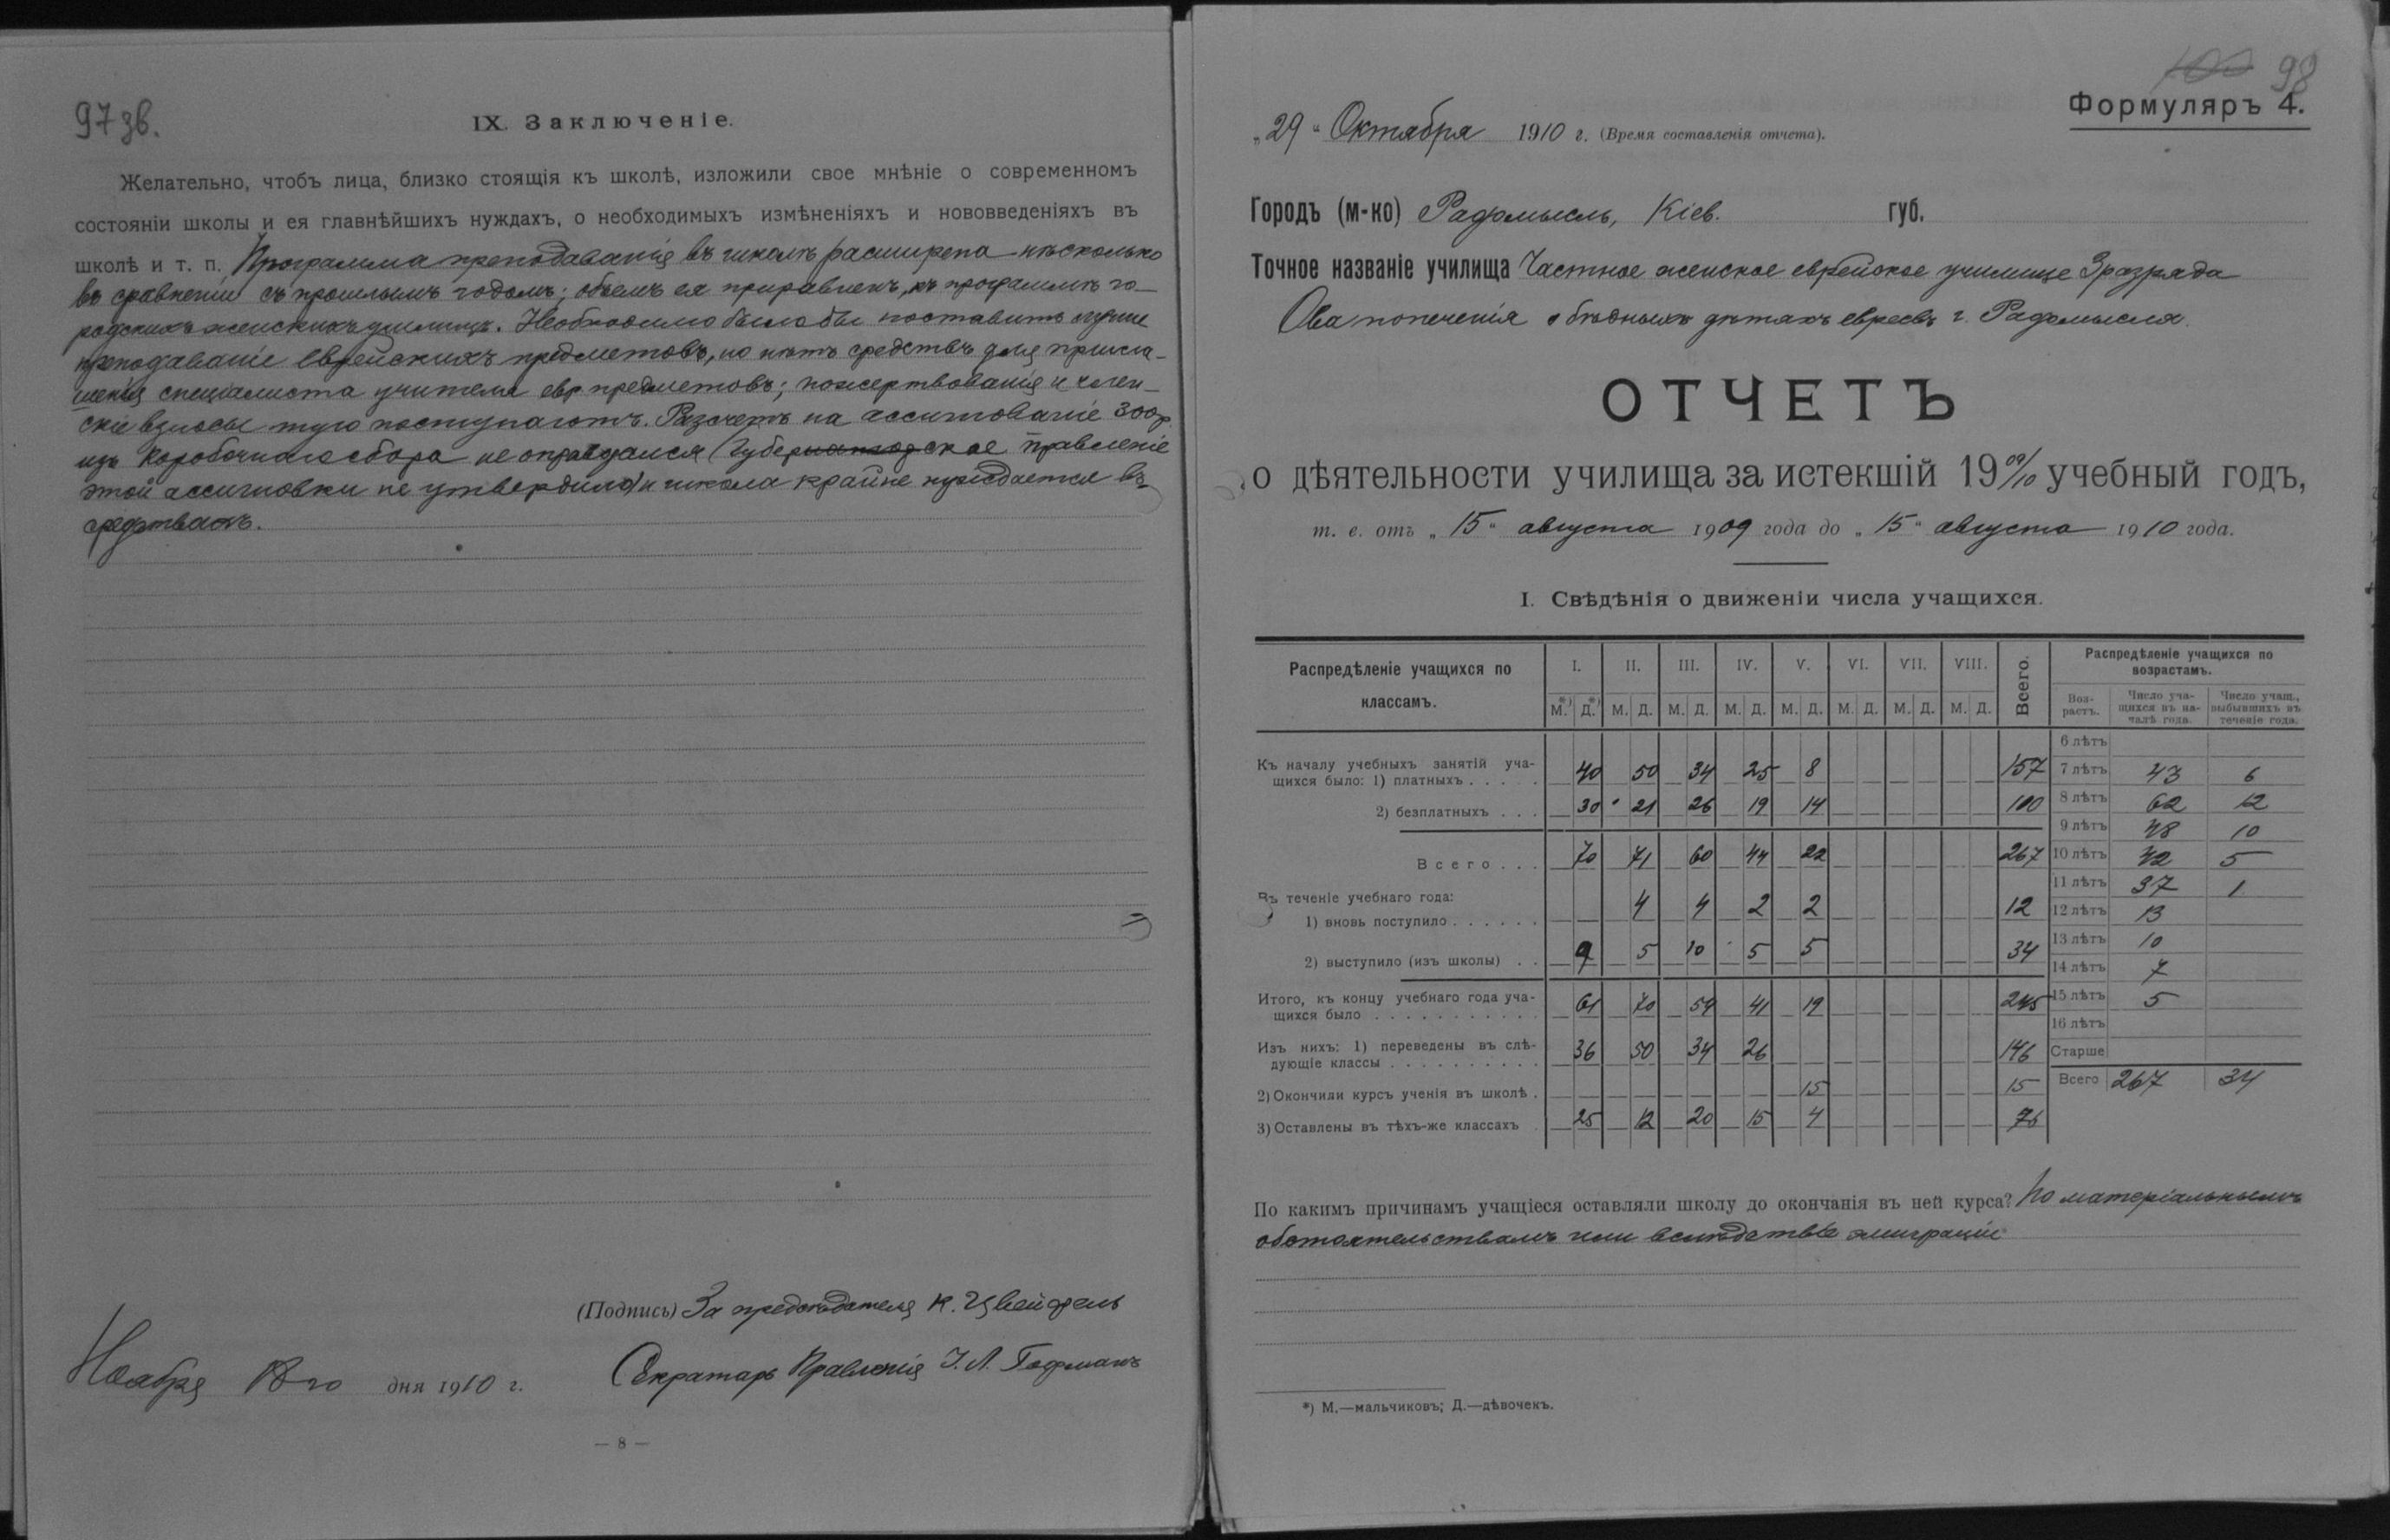 97 зв.
IX. Заключеніе.
Желательно, чтобъ лица, близко стоящія къ школѣ, изложили свое мнѣніе о современномъ
состояніи школы и ея главнѣйшихъ нуждахъ, о необходимыхъ измѣненіяхъ и нововведеніяхъ въ
школѣ и т. п. Программа преподаванія въ школѣ расширена нѣсколько
въ сравненіи съ прошлымъ годомъ; объемъ ея приравненъ къ программѣ го-
родскихъ женскихъ училищъ. Необходимо было бы поставить лучше
преподаваніе еврейскихъ предметовъ, но нѣтъ средствъ для пригла-
шенія спеціалиста учителя евр. предметовъ; пожертвованія и член-
скіе взносы туго поступаютъ. Разсчетъ на ассигнованіе 300 р.
изъ коробочнаго сбора не оправдался (Губернское правленіе
этой ассигновки не утвердило) и школа крайне нуждается въ
средствахъ.
(Подпись) За предсѣдателя К. Цвейфель
Секратарь Правленія І. Л. Гофманъ
Ноября 18го дня 1910 г.
— 8 —
100 98
Формуляръ 4.
„29“ Октября 1910 г. (Время составленія отчета).
Городъ (м-ко) Радомысль, Кіев. губ.
Точное названіе училища Частное женское еврейское училище 3 разряда
О-ва попеченія о бѣдныхъ дѣтяхъ евреевъ г. Радомысля.
ОТЧЕТЪ
о дѣятельности училища за истекшій 19 09/10 учебный годъ,
т. е. отъ „15“ августа 1909 года до „15“ августа 1910 года.
I. Свѣдѣнія о движеніи числа учащихся.
Распредѣленіе учащихся по классамъ. I. II. III. IV. V. VI. VII. VIII. Всего.
М.*) Д.*) М. Д. М. Д. М. Д. М. Д. М. Д. М. Д. М. Д.
Къ началу учебныхъ занятій уча-
щихся было: 1) платныхъ . . . . . 40 50 34 25 8 157
2) безплатныхъ . . . 30 21 26 19 14 110
Всего . . . 70 71 60 44 22 267
Въ теченіе учебнаго года:
1) вновь поступило . . . . . . 4 4 2 2 12
2) выступило (изъ школы) . . 9 5 10 5 5 34
Итого, къ концу учебнаго года уча-
щихся было . . . . . . . . . . . 61 70 54 41 19 245
Изъ нихъ: 1) переведены въ слѣ-
дующіе классы . . . . . . . . . . 36 50 34 26 146
2) Окончили курсъ ученія въ школѣ . 15 15
3) Оставлены въ тѣхъ-же классахъ 25 12 20 15 4 76
Распредѣленіе учащихся по возрастамъ.
Воз-растъ. Число уча-щихся въ на-чалѣ года. Число учащ., выбывшихъ въ теченіе года.
6 лѣтъ
7 лѣтъ 43 6
8 лѣтъ 62 12
9 лѣтъ 48 10
10 лѣтъ 42 5
11 лѣтъ 37 1
12 лѣтъ 13
13 лѣтъ 10
14 лѣтъ 7
15 лѣтъ 5
16 лѣтъ
Старше
Всего 267 34
По какимъ причинамъ учащіеся оставляли школу до окончанія въ ней курса? По матеріальнымъ
обстоятельствамъ или вслѣдствіе эмиграціи
*) М.—мальчиковъ; Д.—дѣвочекъ.